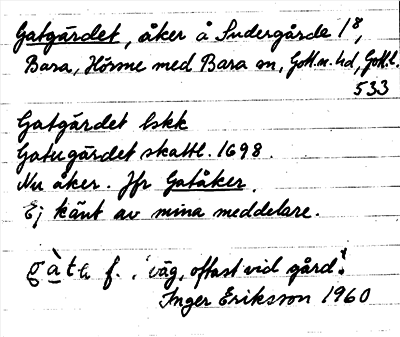 Gatgärdet, åker å Sudergårde 1⁸,
Bara, Hörsne med Bara sn, Gotl. n. hd, Gotl. l.
533
Gatgärdet lskk
Gatugärdet skattl. 1698.
Nu åker. Jfr Gatåker.
Ej känt av mina meddelare.
gàta f. 'väg, oftast vid gård'.
Inger Eriksson 1960